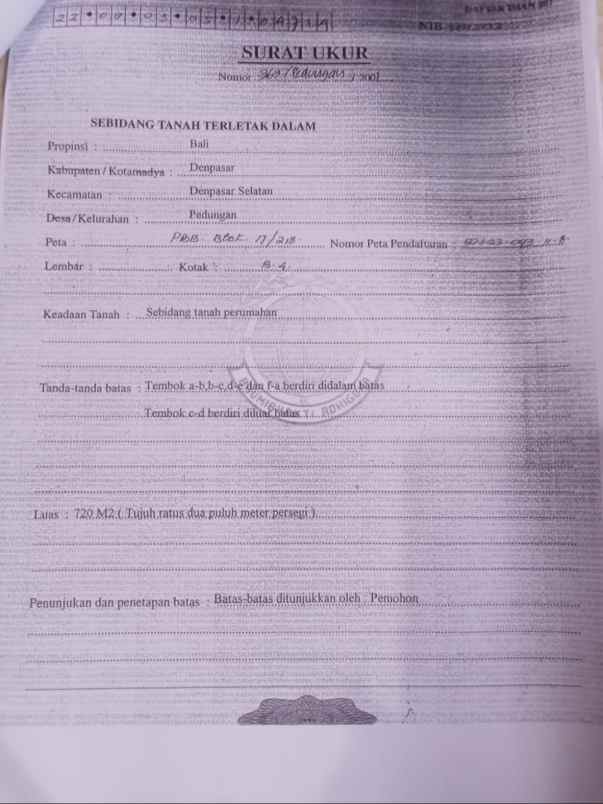 NIB
SURAT UKUR
Nomor /Pedungan/ 2001
SEBIDANG TANAH TERLETAK DALAM
Propinsi : Bali
Kabupaten / Kotamadya : Denpasar
Kecamatan : Denpasar Selatan
Desa/Kelurahan : Pedungan
Peta : PBB Blok 17/213 Nomor Peta Pendaftaran
Lembar : Kotak : B.4
Keadaan Tanah : Sebidang tanah perumahan
Tanda-tanda batas : Tembok a-b,b-c,d-e dan f-a berdiri didalam batas
Tembok c-d berdiri diluar batas
Luas : 720 M2 ( Tujuh ratus dua puluh meter persegi )
Penunjukan dan penetapan batas : Batas-batas ditunjukkan oleh Pemohon